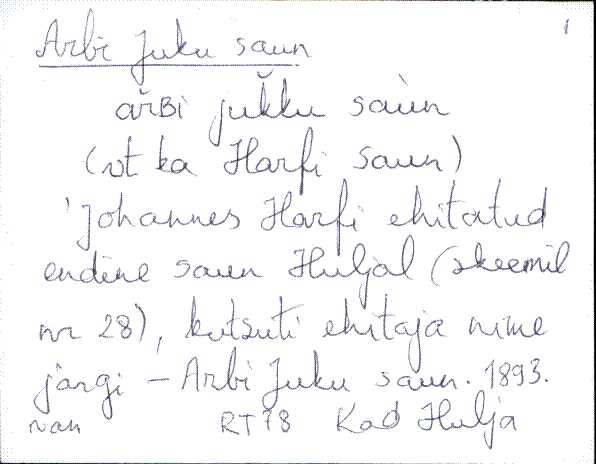 1
Arbi Juku saun
ařʙi juǩku saùn
(vt ka Harfi saun)
Johannes Harfi ehitatud
endine saun Huljal (skeemil
nr 28), kutsuti ehitaja nime
järgi – Arbi Juku saun. 1893.
van RT 78 Kad Hulja